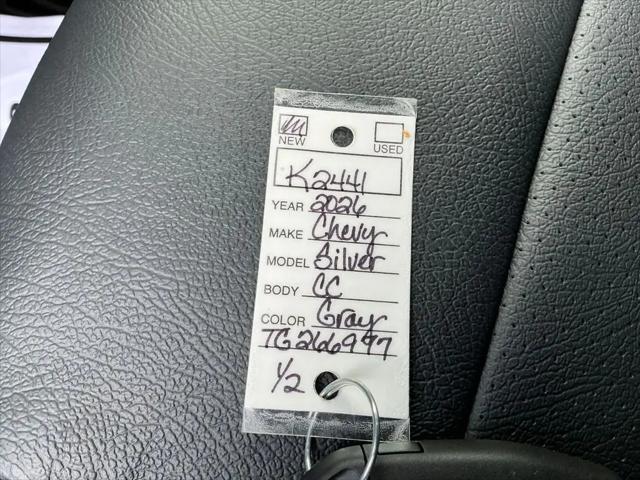 NEW USED
K2441
YEAR 2026
MAKE Chevy
MODEL Silver
BODY CC
COLOR Gray
TG266997
1/2